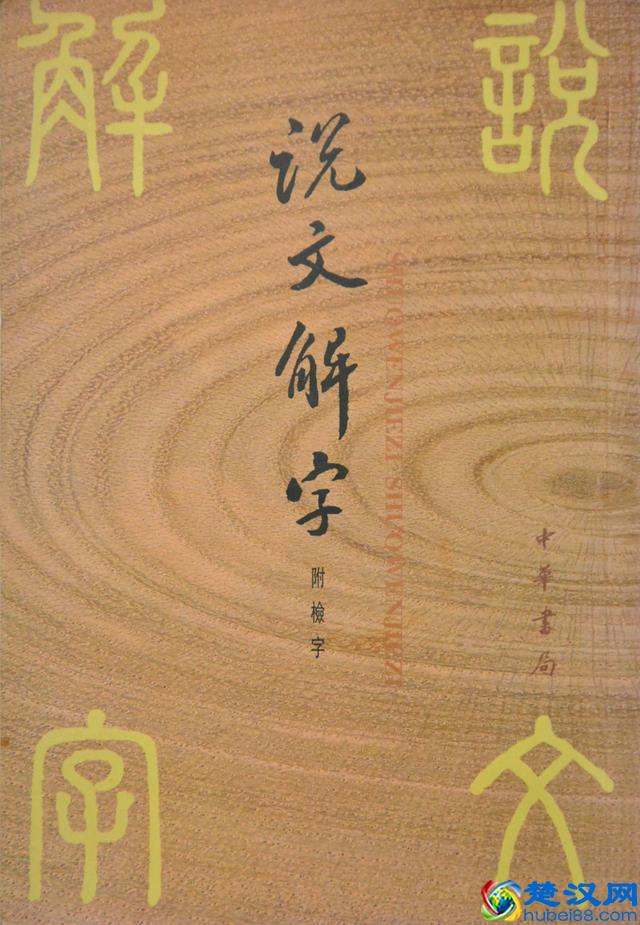 說
文
解
字
说文解字
附檢字
SHUOWENJIEZI SHUOWENJIEZI
中华书局
楚汉网
hubei88.com